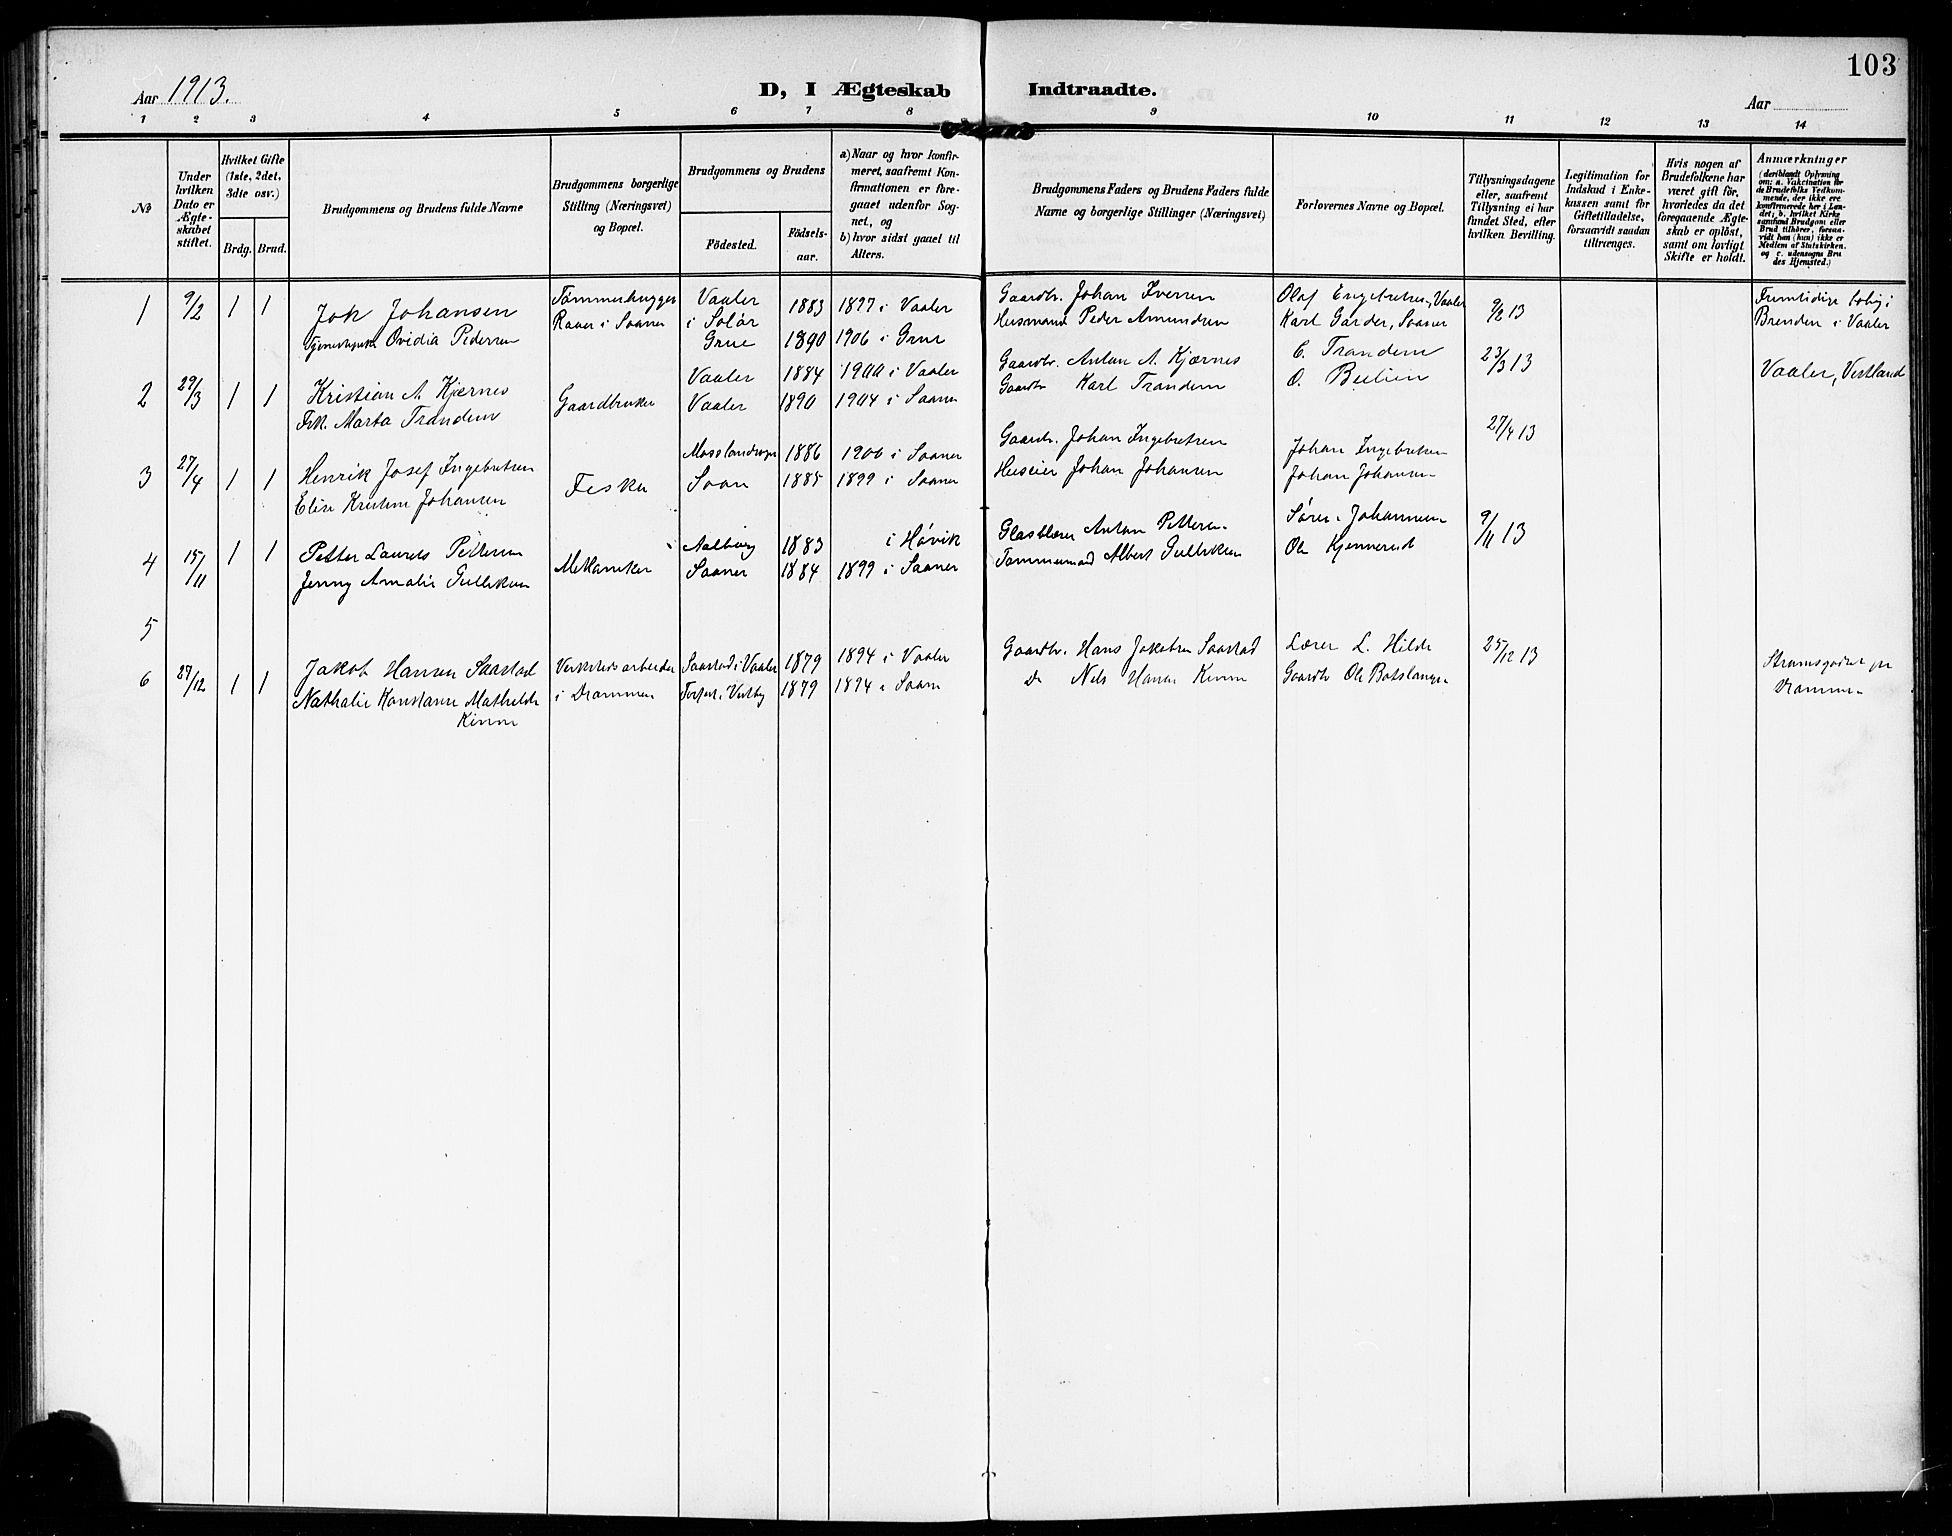 103
Aar 1913.
D, I Ægteskab Indtraadte.
Aar
1 2 3 4 5 6 7 8 9 10 11 12 13 14
№
Under hvilken Dato er Ægteskabet stiftet.
Hvilket Gifte (1ste, 2det, 3die osv.)
Brdg. Brud.
Brudgommens og Brudens fulde Navne
Brudgommens borgerlige Stilling (Næringsvei) og Bopæl.
Brudgommens og Brudens
Födested.
Födsels-aar.
a) Naar og hvor konfirmeret, saafremt Konfirmationen er foregaaet udenfor Sognet, og
b) hvor sidst gaaet til Alters.
Brudgommens Faders og Brudens Faders fulde Navne og borgerlige Stillinger (Næringsvei)
Forlovernes Navne og Bopæl.
Tillysningsdagene eller, saafremt Tillysning ei har fundet Sted, efter hvilken Bevilling.
Legitimation for Indskud i Enkekassen samt for Giftetilladelse, forsaavidt saadan tiltrænges.
Hvis nogen af Brudefolkene har været gift för, hvorledes da det foregaaende Ægteskab er oplöst, samt om lovligt Skifte er holdt.
Anmærkninger (deriblandt Oplysning om: a. Vakcination för de Brudefolks Vedkommende, der ikke ere konfirmerede her i Landet; b. hvilket Kirkesamfund Brudgom eller Brud tilhörer, forsaavidt han (hun) ikke er Medlem af Statskirken. og c. udensogns Brudes Hjemsted.)
1 9/2 1 1 Jok Johansen Tømmerhugger Vaaler i Solør 1883 1897 i Vaaler Gaardbr. Johan Iversen Olaf Engebretsen, Vaaler 9/2 13 Fremtidige bolig i
Ovidia Pedersen i Saaner Grue 1890 1906 i Grue Husmand Peder Amundsen Karl Garder, Saaner Brenden i Vaaler
2 29/3 1 1 Kristian A. Kjærnes Gaardbruker Vaaler 1884 1900 i Vaaler Gaardbr. Anton A. Kjærnes C. Trandem 23/3 13 Vaaler, Vestland
Frk. Marta Trandem Vaaler 1890 1904 i Saaner Gaardbr Karl Trandem O.
3 27/4 1 1 Henrik Josef Ingebretsen Fisker 1886 1900 i Saaner Gaardbr. Johan Ingebretsen Johan Ingebretsen 27/4 13
Elise Kristine Johansen Soon 1885 1899 i Saaner Huseier Johan Johansen Johan Johansen
4 15/11 1 1 Petter Laurits Pettersen Mekaniker Aalborg 1883 i Høvik Glasblæser Anton Pettersen Søren Johannesen 9/11 13
Jenny Amalie Gulliksen Saaner 1884 1899 i Saaner Tømmermand Albert Gulliksen Ole Kjennerud
5
6 27/12 1 1 Jakob Hansen Saastad Verkstedsarbeider Saastad i Vaaler 1879 1894 i Vaaler Gaardbr. Hans Jakobsen Saastad Lærer L. Hilde 25/12 13 Strømsgodset pr
Nathalie Konstanse Mathilde Kinn i Drammen i Vestby 1879 1894 i Saaner Do Nils Hansen Kinn Gaardbr Ole Drammen